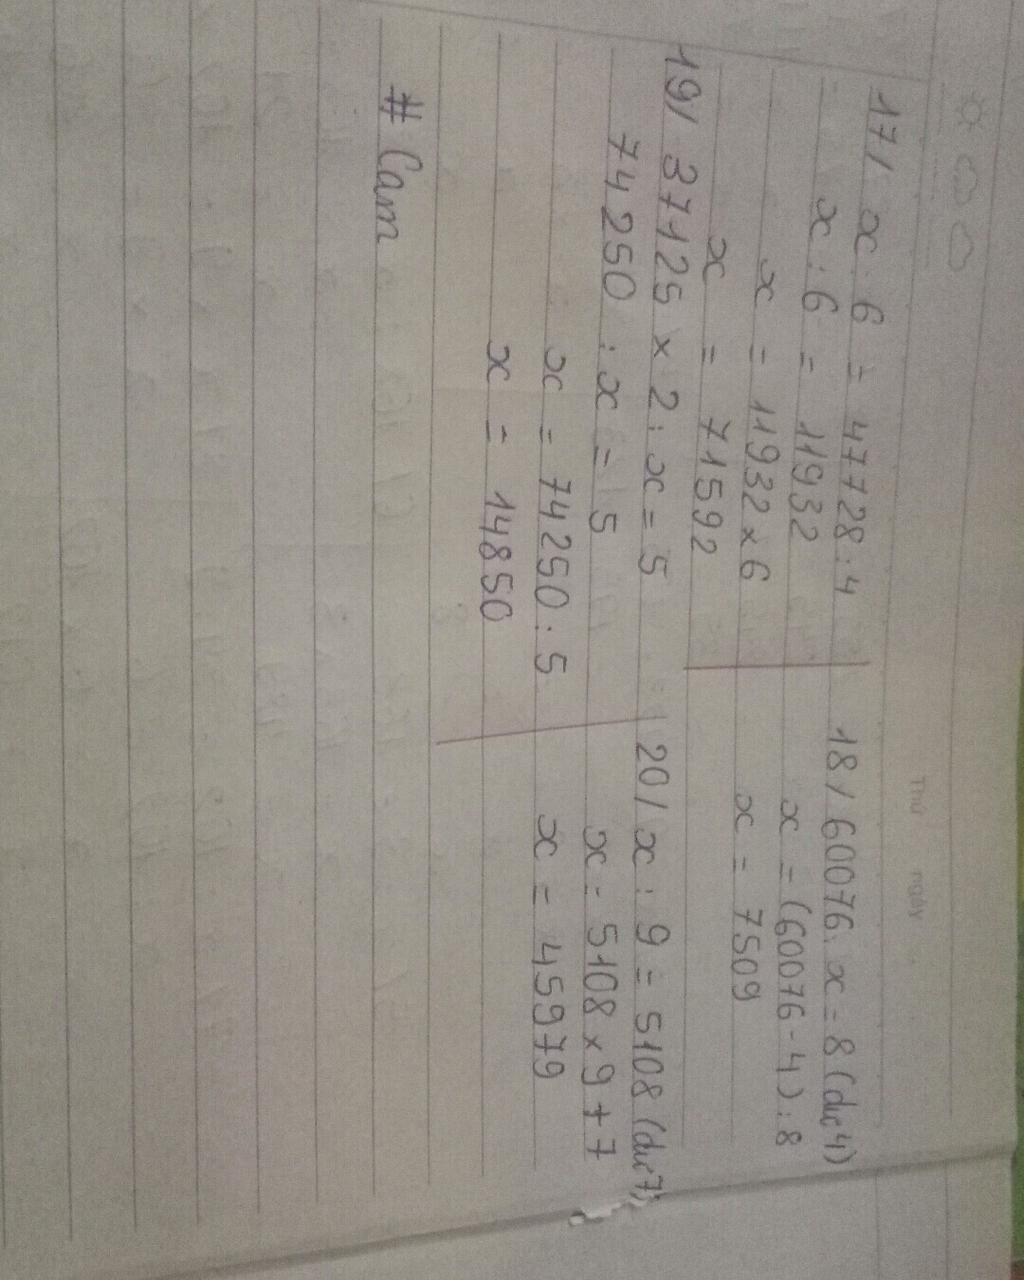 Thứ ngày
17/ x : 6 = 47728 : 4
x : 6 = 11932
x = 11932 x 6
x = 71592
18/ 60076 : x = 8 (dư 4)
x = (60076 - 4) : 8
x = 7509
19/ 37125 x 2 : x = 5
74250 : x = 5
x = 74250 : 5
x = 14850
20/ x : 9 = 5108 (dư 7)
x = 5108 x 9 + 7
x = 45979
# Cam